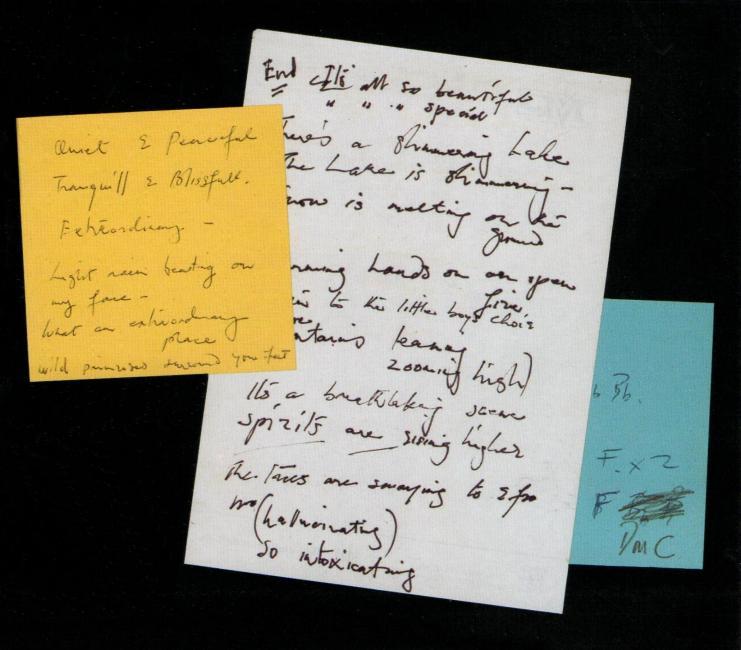 Quiet & Peaceful
Tranquill & Blissfull.
Extraordinary -
Light rain beating on
my face -
What an extraordinary
place
Wild surround your feet
End It's all so beautiful
" " " special
There's a shimmering Lake
The Lake is shimmering -
Snow is melting on the
ground
hands on an open
fire,
to the little boys choir
leaning
zooming high)
It's a breathtaking scene
spirits are rising higher
The Trees are swaying to & fro
(hallucinating)
So intoxicating
Bb.
F. x 2
F
DmC